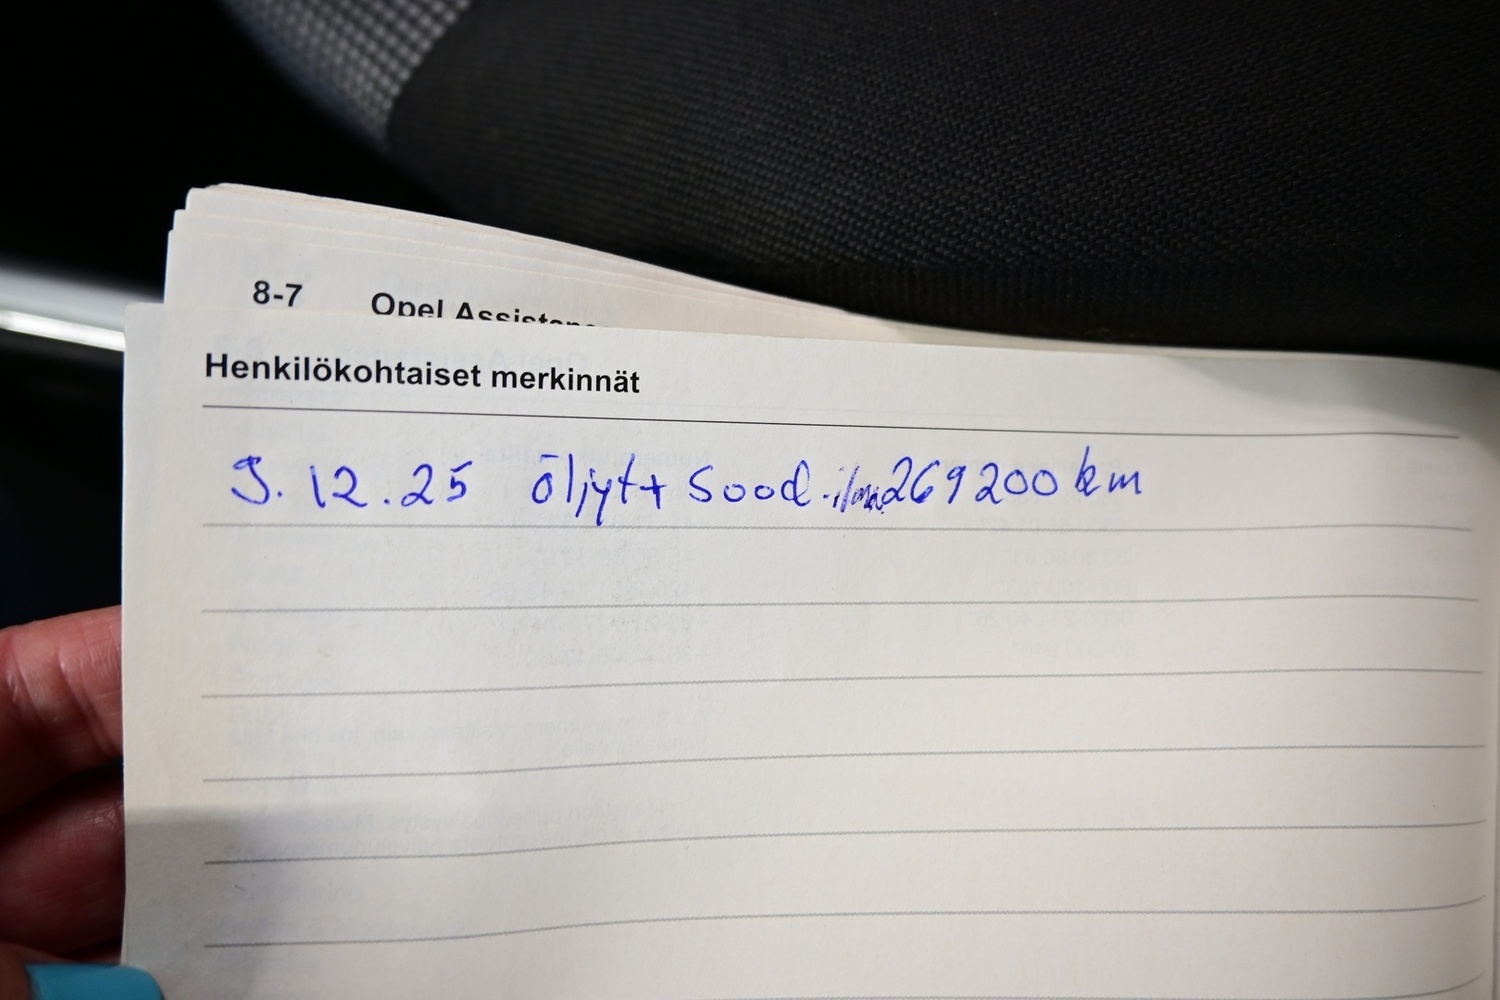 8-7 Opel Assistan
Henkilökohtaiset merkinnät
9.12.25 öljyt + Suod. ilma 269200 km